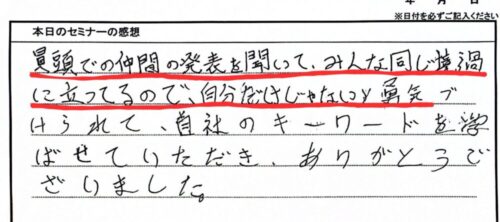 年　月　日
※日付を必ずご記入ください
本日のセミナーの感想
冒頭での仲間の発表を聞いて、みんな同じ境遇
に立ってるので、自分だけじゃないと勇気づ
けられて、自社のキーワードを学
ばせていただき、ありがとうご
ざいました。